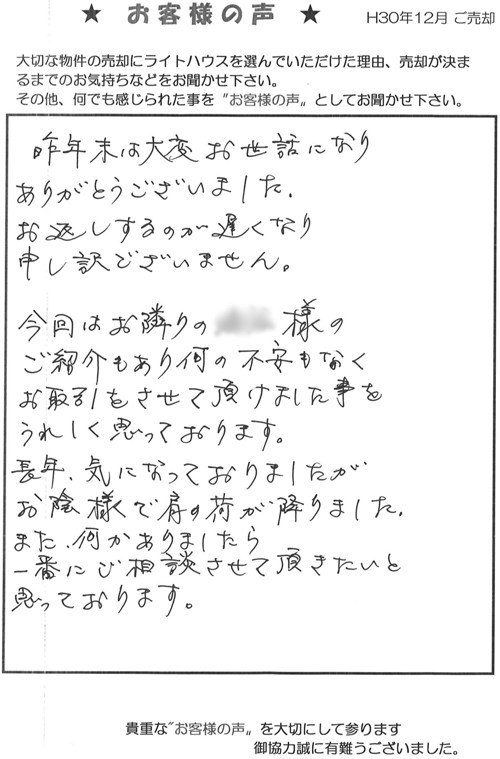 ★ お客様の声 ★ H30年12月 ご売却
大切な物件の売却にライトハウスを選んでいただけた理由、売却が決ま
るまでのお気持ちなどをお聞かせ下さい。
その他、何でも感じられた事を〝お客様の声〟としてお聞かせ下さい。
昨年末は大変お世話になり
ありがとうございました.
お返しするのが遅くなり
申し訳ございません。
今回はお隣りの 様の
ご紹介もあり何の不安もなく
お取引をさせて頂けました事を
うれしく思っております。
長年、気になっておりましたが
お陰様で肩の荷が降りました.
また、何かありましたら
一番にご相談させて頂きたいと
思っております。
貴重な〝お客様の声〟を大切にして参ります
御協力誠に有難うございました。